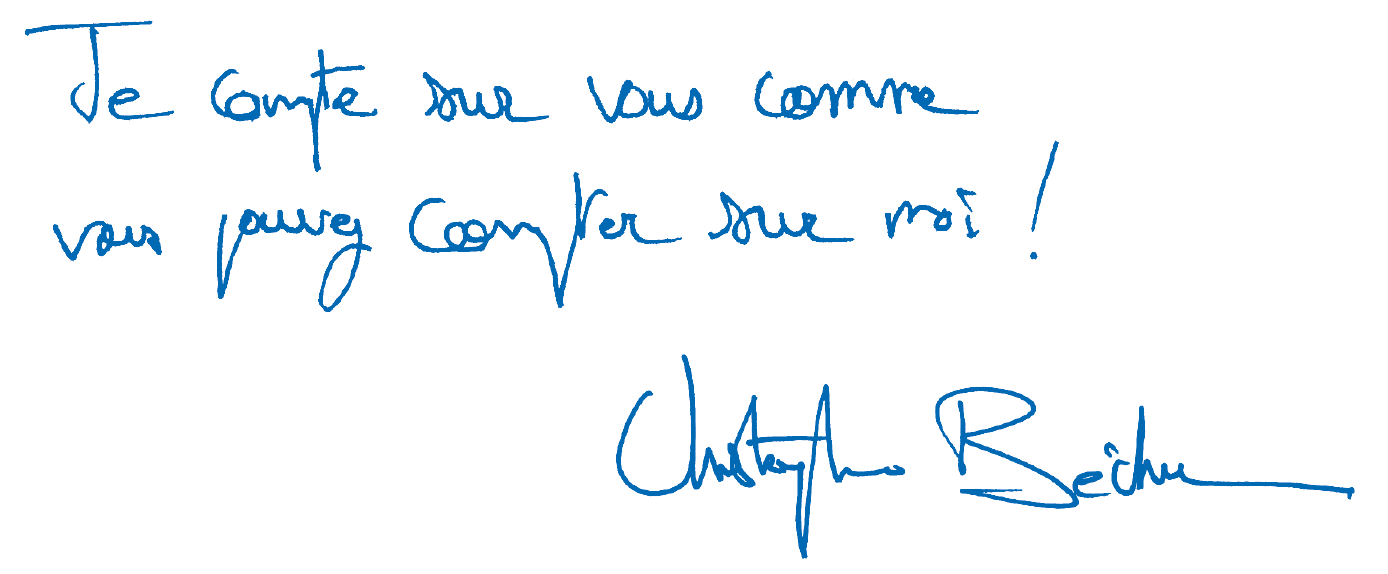 Je compte sur vous comme
vous pouvez compter sur moi !
Christophe Béchu